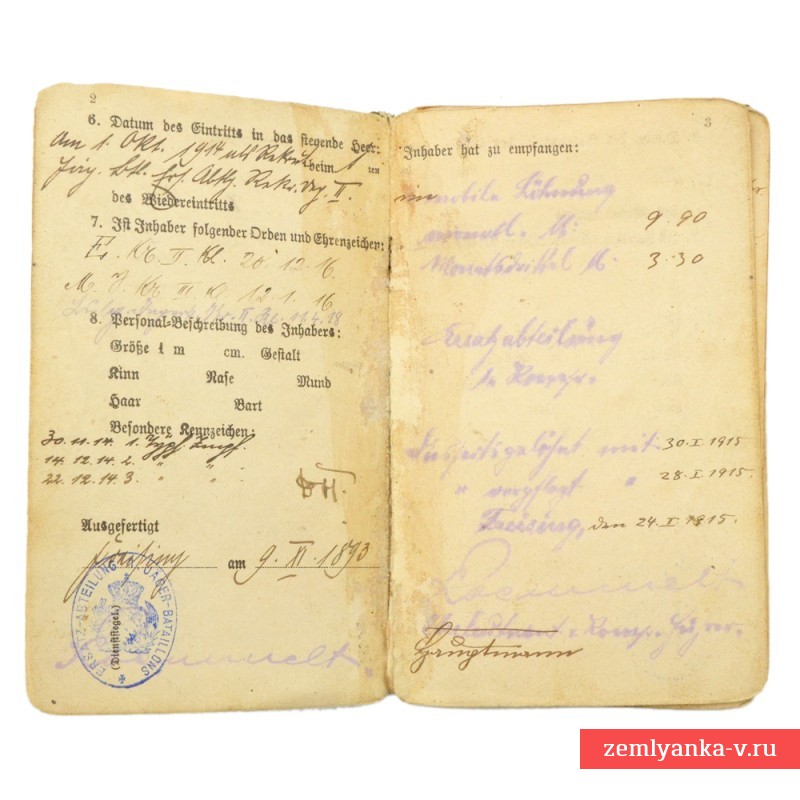 2
6. Datum des Eintritts in das stehende Heer:
Am 1. Okt. 1914 als Rekrut beim
Btl. Ers. Abtlg. Rekr. II.
des Wiedereintritts
7. Ist Inhaber folgender Orden und Ehrenzeichen:
E. Kr. II. Kl. 20. 12. 16.
M. V. Kr. III. Kl. 12. 1. 16
8. Personal-Beschreibung des Inhabers:
Größe 1 m cm. Gestalt
Kinn Nase Mund
Haar Bart
Besondere Kennzeichen:
30. 11. 14. 1. Typh. Impf.
14. 12. 14. 2. " "
22. 12. 14. 3. " "
Ausgefertigt
Freising am 9. XI. 1893
ERSATZ-ABTEILUNG JÄGER-BATAILLONS
(Dienstsiegel.)
3
Inhaber hat zu empfangen:
immobile Löhnung
monatl. M: 9.90
Monatsdrittel M. 3.30
Ersatzabteilung
1. Komp.
mit 30. I. 1915
" verpflegt " 28. I. 1915.
Freising, den 24. I. 1915.
Hauptmann
zemlyanka-v.ru